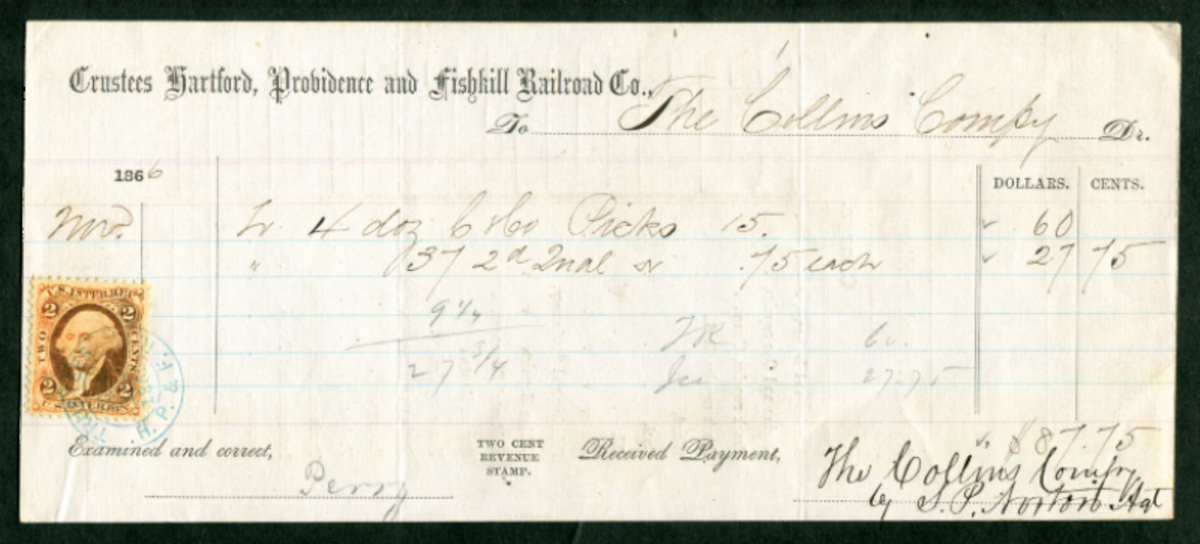 Trustees Hartford, Providence and Fishkill Railroad Co.,
To The Collins Compy Dr.
1866
DOLLARS. CENTS.
Nov. 4 doz C&Co Picks 15. 60
" 37 2d Qual " .75 each 27 75
9 1/4
60.
27 3/4
27.75
U.S. INTER. REV.
2 2
TWO CENTS
2 2
H. P. & F.
$87.75
Examined and correct,
TWO CENT
REVENUE
STAMP.
Received Payment,
Perry
The Collins Compy
by S.P. Norton Agt